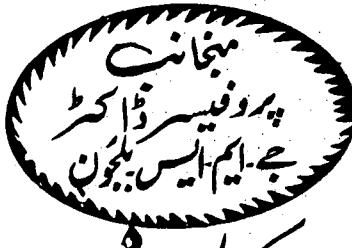 منجانب
پروفیسر ڈاکٹر
جے-ایم-ایس بلچون